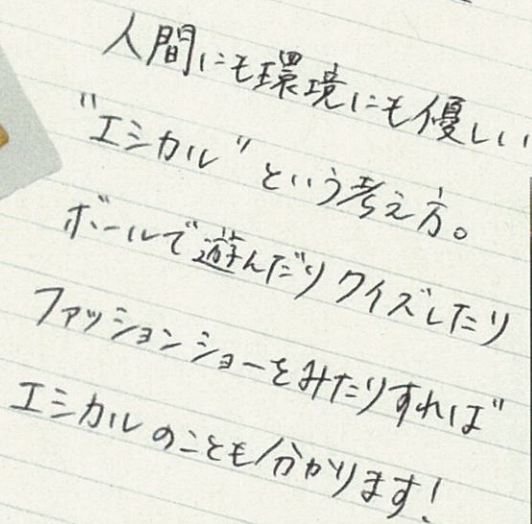 人間にも環境にも優しい
"エシカル"という考え方。
ボールで遊んだりクイズしたり
ファッションショーをみたりすれば
エシカルのことも分かります!